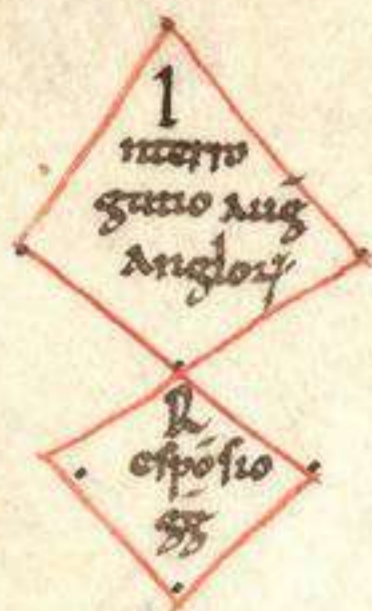 I
nterro
gatio aug̅
anglorꝝ
R
espósio
g̅g̅